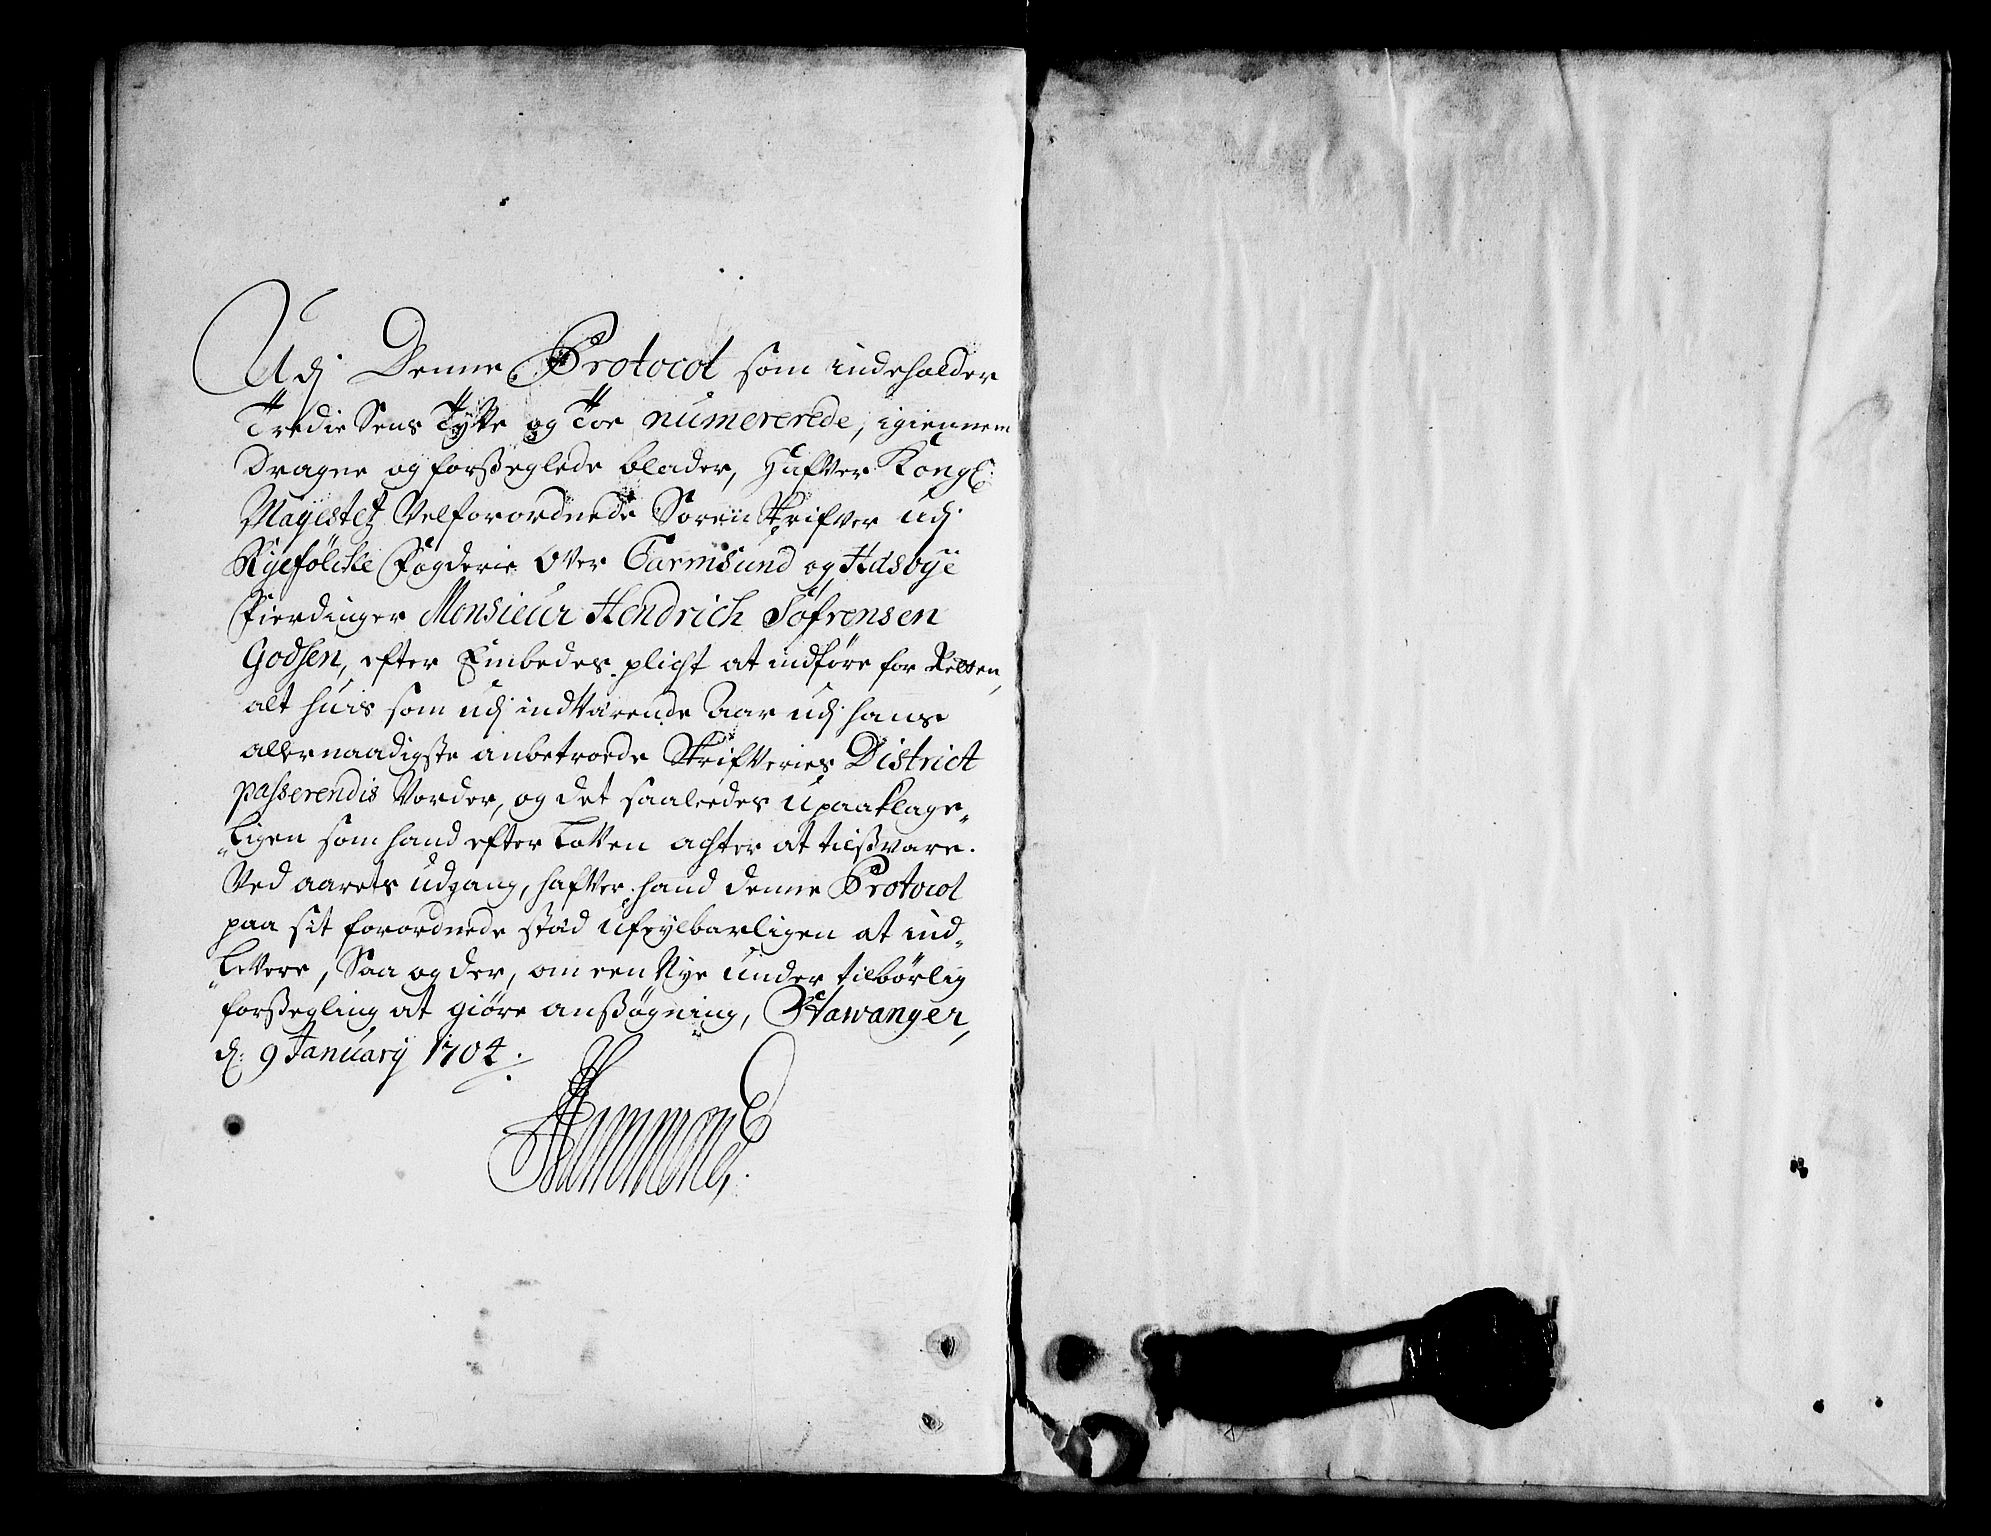 Udj Denne Protocol som indeholder
Tredie Sens Tyfve og Toe numererede, igiennem
dragne og forßeglede blader, hafver Kongl:
Mayestetz Velforordnede Soren Skrifver udj
Ryefölcke Fogderie over Carmsund og Hesbye
Fierdinger Monsieur Hendrich Söfrensen
Godsen, efter Embedes plicht at indföre for Retten,
alt huis som udj indVærende Aar udj hans
allernaadigste anbetroede Skrifveries District
passerendis Vorder, og det saaleedes upaaklage„
„ligen som hand efter Loven achter at tilßvare.
Ved aarets udgang, hafver hand denne Protocol
paa sit forordnede stæd ufeylbarligen at ind„
„levere, Saa og der, om een Nye under tilbørlig
forßegling at giöre anßögning, Stawanger,
d: 9 January 1704.
Hammond